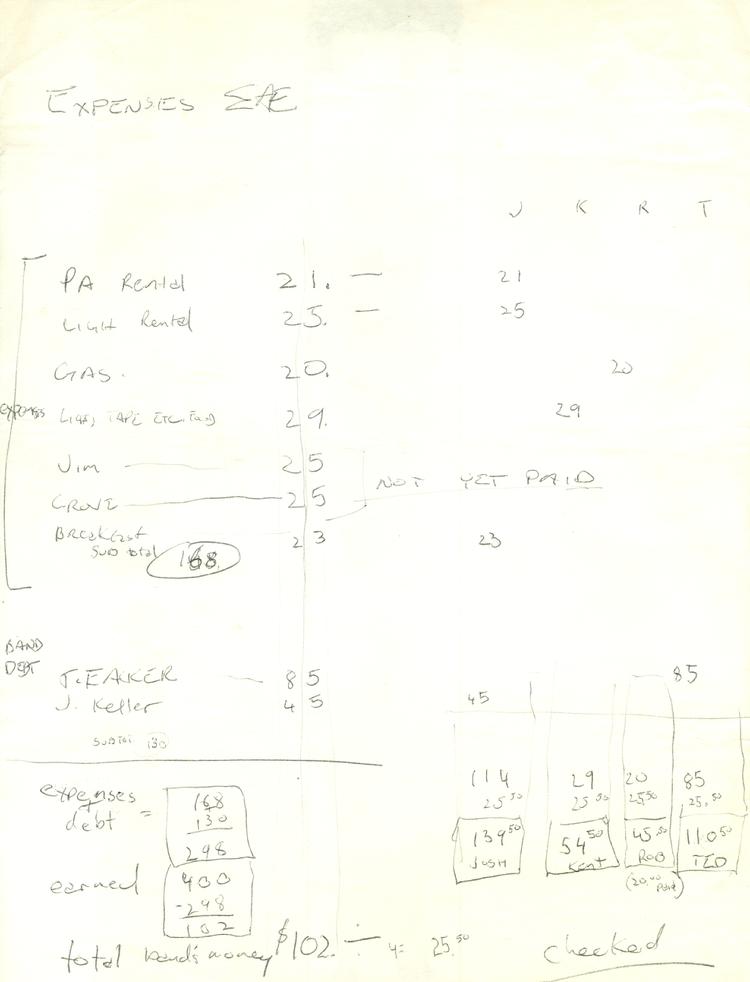 EXPENSES ΣAE
J K R T
PA Rental 21. — 21
Light Rental 25. — 25
GAS. 20. 20
EXPENSES
TAPE ETC. 29. 29
Jim — 25
NOT YET PAID
GROVE — 25
BREAKfast 23 23
SUB total 168.
BAND
DEBT
T. EAKER — 85 85
J. Keller 45 45
SUBTOT 130
114 29 20 85
25.50 25.50 25.50 25.50
139.50 54.50 45.50 110.50
JOSH Kent ROB TED
(20.00 Paid)
expenses 168
+
debt = 130
298
earned 400
-298
102
total band's money $102. ÷ 4 = 25.50
checked